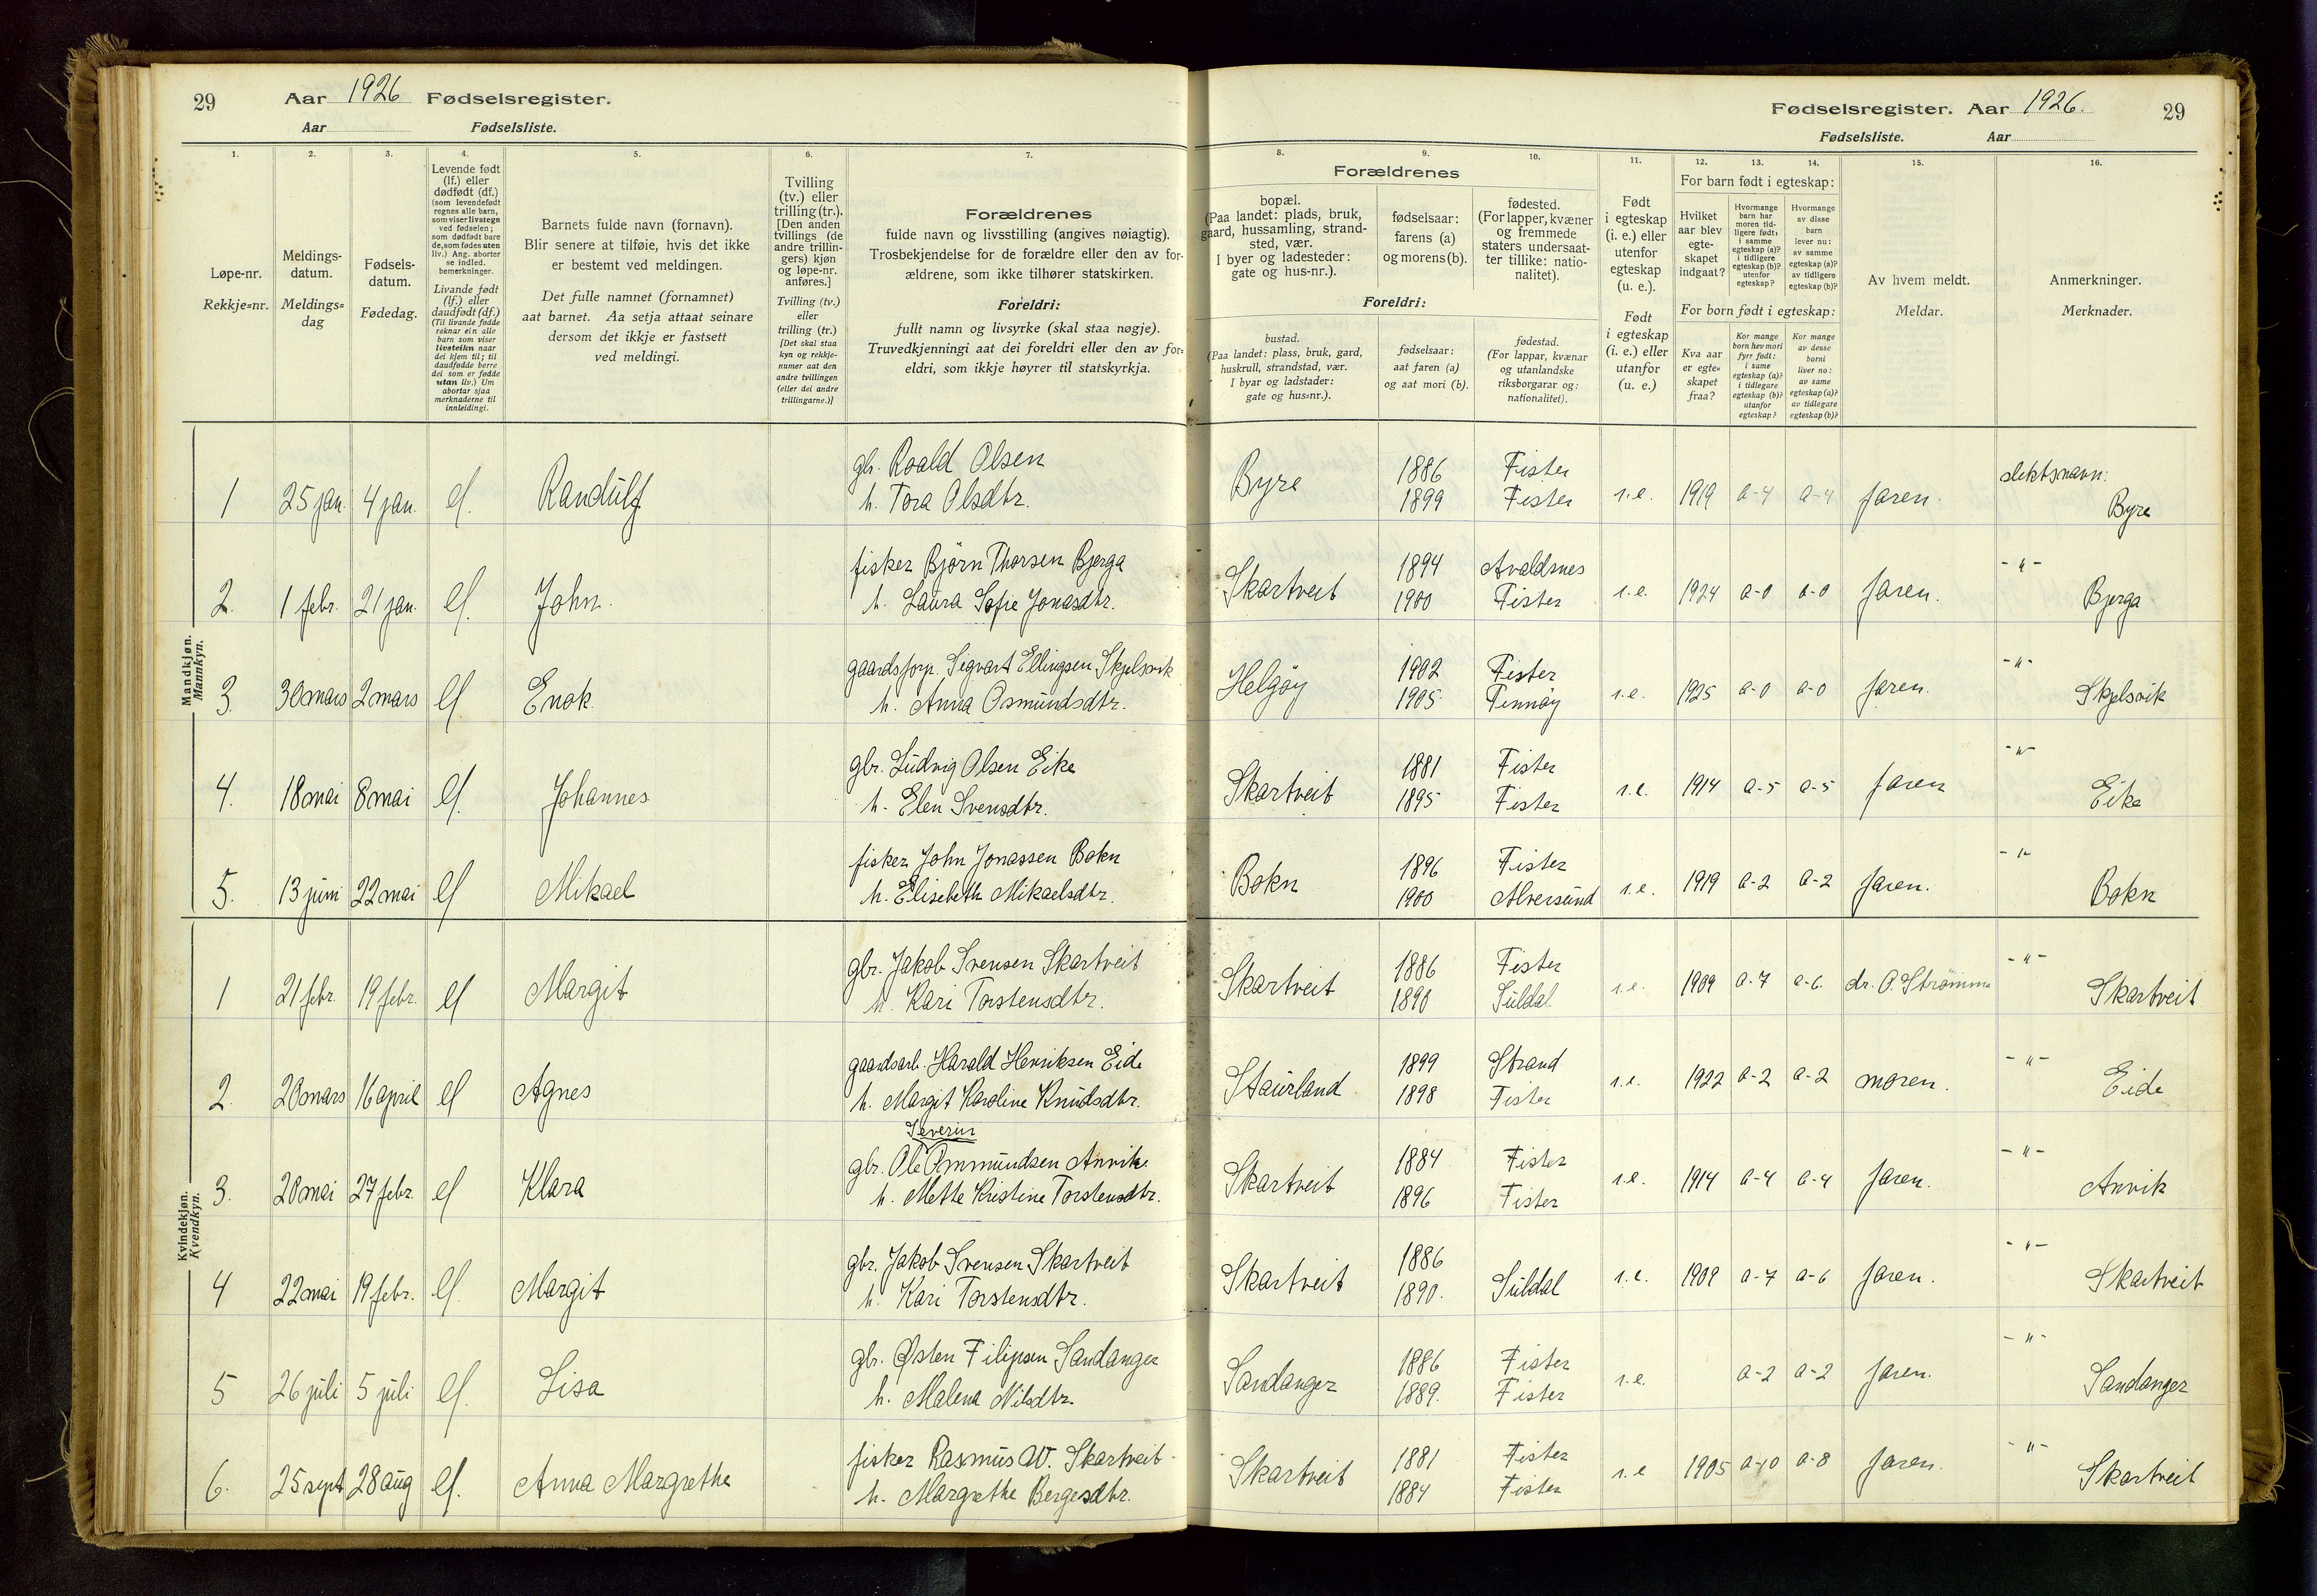 29 Aar 1926 Fødselsregister.
Aar Fødselsliste.
1.
2.
3.
4.
5.
6.
7.
Løpe-nr.
Rekkje=nr.
Meldings-
datum.
Meldings=
dag
Fødsels-
datum.
Fødedag.
Levende født
(lf.) eller
dødfødt (df.)
(som levendefødt
regnes alle barn,
som viser livstegn
ved fødselen;
som dødfødt bare
de, som fødes uten
liv.) Ang. aborter
se indled.
bemerkninger.
Livande født
(lf.) eller
daudfødt (df.)
(Til livande fødde
reknar ein alle
barn som viser
livsteikn naar
dei kjem til; til
daudfødde berre
dei som er fødde
utan liv.) Um
abortar sjaa
merknaderne til
innleidingi.
Barnets fulde navn (fornavn).
Blir senere at tilføie, hvis det ikke
er bestemt ved meldingen.
Det fulle namnet (fornamnet)
aat barnet. Aa setja attaat seinare
dersom det ikkje er fastsett
ved meldingi.
Tvilling
(tv.) eller
trilling (tr.).
[Den anden
tvillings (de
andre trillin-
gers) kjøn
og løpe-nr.
anføres.]
Tvilling (tv.)
eller
trilling (tr.)
[Det skal staa
kyn og rekkje-
numer aat den
andre tvillingen
(eller dei andre
trillingarne.)]
Forældrenes
fulde navn og livsstilling (angives nøiagtig).
Trosbekjendelse for de forældre eller den av for-
ældrene, som ikke tilhører statskirken.
Foreldri:
fullt namn og livsyrke (skal staa nøgje).
Truvedkjenningi aat dei foreldri eller den av for=
eldri, som ikkje høyrer til statskyrkja.
Mandkjøn.
Mannkyn.
1 25 jan. 4 jan. lf. Randulf gbr. Roald Olsen
h. Tora Olsdtr.
2. 1 febr. 21 jan. lf. John. fisker Björn Thorsen Bjerga
h. Laura Sofie Jonasdtr.
3. 30 mars 2 mars lf Enok. gaardsforp. Sigvart Ellingsen Skjelsvik
h. Anna Osmundsdtr.
4. 18 mai 8 mai lf. Johannes gbr. Ludvig Olsen Eike
h. Elen Svensdtr.
5. 13 juni 22 mai lf Mikael fisker John Jonassen Bokn
h. Elisebeth Mikaelsdtr.
Kvindekjøn.
Kvendkyn.
1 21 febr. 19 febr. lf Margit gbr. Jakob Svensen Skartveit
h. Kari Torstensdtr.
2. 20 mars 16 april lf Agnes gaardsarb. Harald Henriksen Eide
h. Margit Karoline Knudsdtr.
Severin
3. 20 mai 27 febr. lf Klara gbr. Ole Ommundsen Anvik.
h. Mette Kristine Torstensdtr.
4 22 mai 19 febr. lf. Margit gbr. Jakob Svensen Skartveit
h. Kari Torstensdtr.
5 26 juli 5 juli lf. Lisa gbr. Østen Filipsen Sandanger
h. Malena Nilsdtr.
6. 25 sept 28 aug lf. Anna Margrethe fisker Rasmus W. Skartveit
h. Margrethe Bergesdtr.
Fødselsregister. Aar 1926. 29
Fødselsliste. Aar
8.
9.
10.
11.
12.
13.
14.
15.
16.
Forældrenes
bopæl.
(Paa landet: plads, bruk,
gaard, hussamling, strand-
sted, vær.
I byer og ladesteder:
gate og hus-nr.).
fødselsaar:
farens (a)
og morens (b).
fødested.
(For lapper, kvæner
og fremmede
staters undersaat-
ter tillike: natio-
nalitet).
Foreldri:
bustad.
(Paa landet: plass, bruk, gard,
huskrull, strandstad, vær.
I byar og ladstader:
gate og hus=nr.).
fødselsaar:
aat faren (a)
og aat mori (b).
fødestad.
(For lappar, kvænar
og utanlandske
riksborgarar og:
nationalitet).
Født
i egteskap
(i. e.) eller
utenfor
egteskap
(u. e.).
Født
i egteskap
(i. e.) eller
utanfor
(u. e.)
For barn født i egteskap:
Hvilket
aar blev
egte-
skapet
indgaat?
Hvormange
barn har
moren tid-
ligere født:
i samme
egteskap (a)?
i tidligere
egteskap (b)?
utenfor
egteskap?
Hvormange
av disse
barn
lever nu:
av samme
egteskap (a)?
av tidligere
egteskap (b)?
For born født i egteskap:
Kva aar
er egte=
skapet
fraa?
Kor mange
born hev mori
fyrr født:
i same
egteskap (a)?
i tidlegare
egteskap (b)?
utanfor
egteskap?
Kor mange
av desse
borni
liver no:
av same
egteskap (a)?
av tidlegare
egteskap (b)?
Av hvem meldt.
Meldar.
Anmerkninger.
Merknader.
Byre 1886 Fister
1899 Fister i.e. 1919 a-4 a-4 faren. slektsnavn:
Byre
Skartveit 1894 Avaldsnes
1900 Fister i.e. 1924 a-0 a-0 faren. -"-
Bjerga
Helgöy 1902 Fister
1905 Fennöy i.e. 1925 a-0 a-0 faren. -"-
Skjelsvik
Skartveit 1881 Fister
1895 Fister i.e. 1914 a-5 a-5 faren -"-
Eike
Bokn 1896 Fister
1900 Alversund i.e. 1919 a-2 a-2 faren. -"-
Bokn
Skartveit 1886 Fister
1890 Suldal i.e. 1909 a-7 a-6. dr. O. Strömme -"-
Skartveit
Staurland 1899 Strand
1898 Fister i.e. 1922 a-2 a-2 moren. -"-
Eide
Skartveit 1884 Fister
1896 Fister i.e. 1914 a-4 a-4 faren. -"-
Anvik
Skartveit 1886
1890. Suldal i.e. 1909 a-7 a-6 faren. -"-
Skartveit
Sandanger 1886 Fister
1889. Fister i.e. a-2 a-2 faren. -"-
Sandanger
Skartveit 1881 Fister
1884 Fister i.e 1905 a-10 a-8 faren. -"-
Skartveit